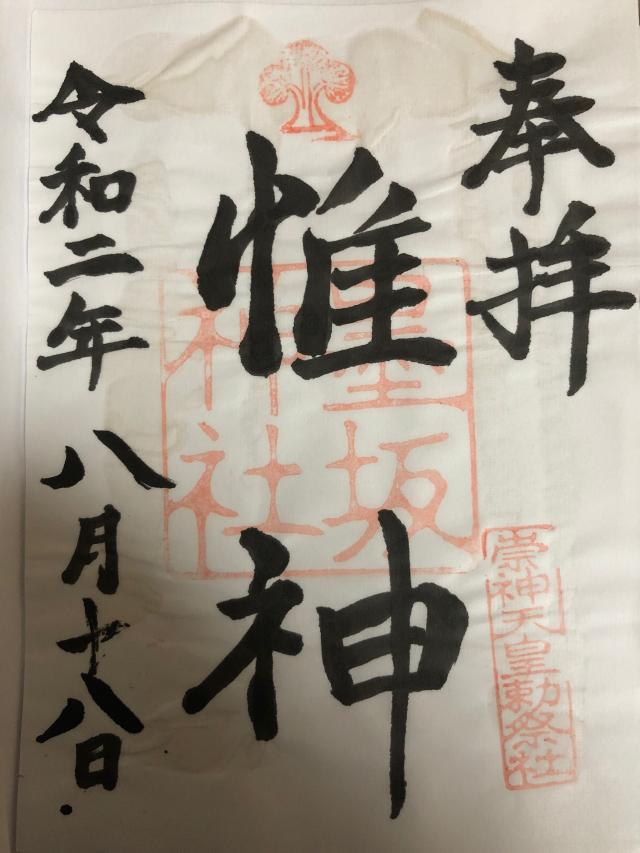 奉拝
崇神天皇勅祭社
惟神
墨坂神社
令和二年八月十八日